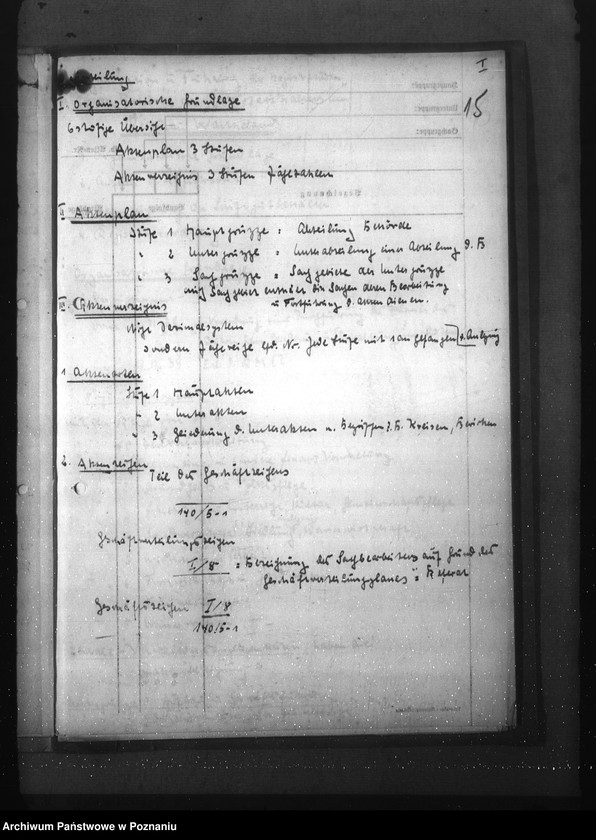 I
15
I. Organisatorische Grundlage
6 stufige Übersicht
Aktenplan 3 Stufen
Aktenverzeichnis 3 Stufen Zählzahlen
II Aktenplan
Stufe 1 Hauptgruppe = Abteilung Behörde
" 2 Untergruppe = Unterabteilung einer Abteilung d. B
" 3 Sachgruppe = Sachgebiete der Untergruppe
u Fortführung d. Akten dienen.
III. Aktenverzeichnis
Dezimalsystem
sondern Zählreihe lfd. Nr. Jede Stufe mit 1 angefangen
1 Aktenarten
Stufe 1 Hauptakten
" 2 Unterakten
" 3 Gliederung d. Unterakten n. Begriffen z.B. Kreisen,
2. Aktenzeichen
Teil des Geschäftszeichens
140/5-1
Geschäftsverteilungszeichen
I/8 = Bezeichnung des Sachbearbeiters auf Grund des
Geschäftsverteilungsplanes = Referat
Geschäftszeichen I/8
140/5-1
Archiwum Państwowe w Poznaniu